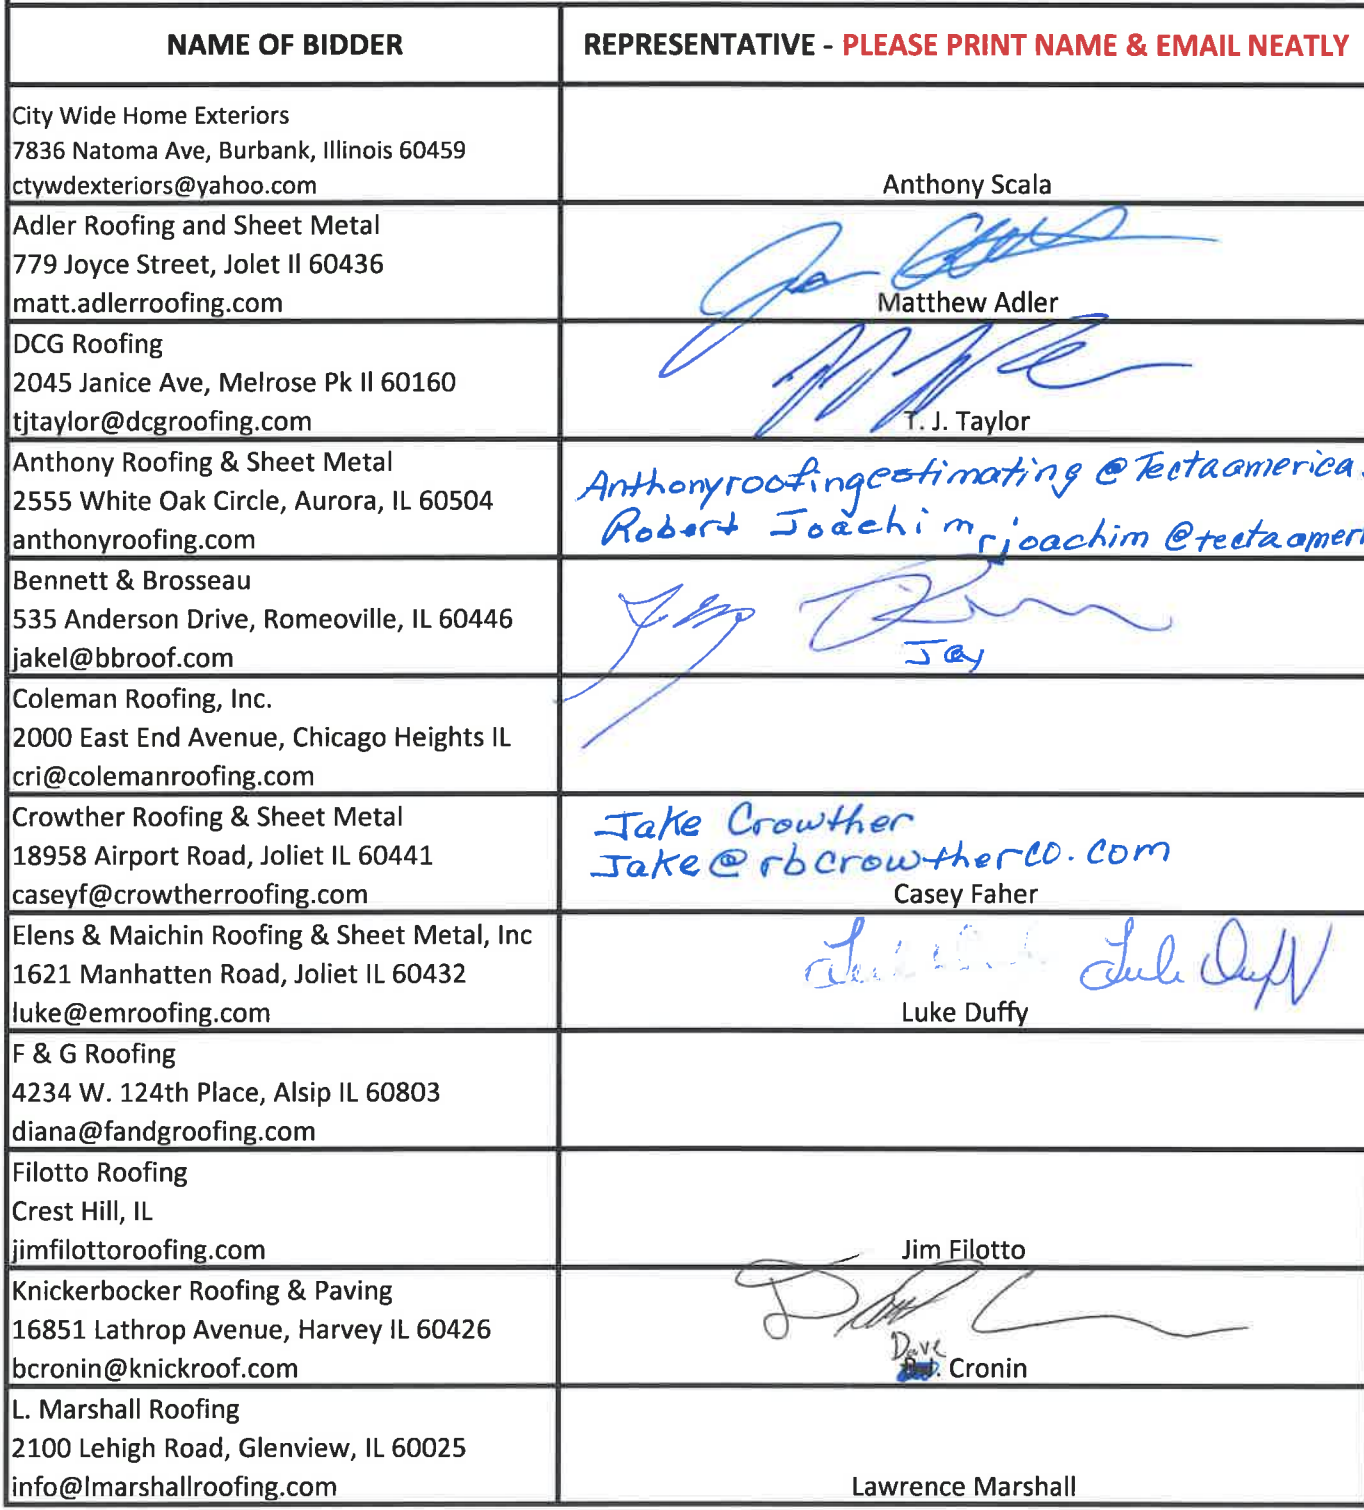 NAME OF BIDDER
REPRESENTATIVE - PLEASE PRINT NAME & EMAIL NEATLY
City Wide Home Exteriors
7836 Natoma Ave, Burbank, Illinois 60459
ctywdexteriors@yahoo.com
Anthony Scala
Adler Roofing and Sheet Metal
779 Joyce Street, Jolet Il 60436
matt.adlerroofing.com
Matthew Adler
DCG Roofing
2045 Janice Ave, Melrose Pk Il 60160
tjtaylor@dcgroofing.com
T. J. Taylor
Anthony Roofing & Sheet Metal
2555 White Oak Circle, Aurora, IL 60504
anthonyroofing.com
Anthonyroofingestimating @ Tectaamerica.
Robert Joachim rjoachim @tectaameri
Bennett & Brosseau
535 Anderson Drive, Romeoville, IL 60446
jakel@bbroof.com
Jay
Coleman Roofing, Inc.
2000 East End Avenue, Chicago Heights IL
cri@colemanroofing.com
Crowther Roofing & Sheet Metal
18958 Airport Road, Joliet IL 60441
caseyf@crowtherroofing.com
Jake Crowther
Jake@rbcrowtherco.com
Casey Faher
Elens & Maichin Roofing & Sheet Metal, Inc
1621 Manhatten Road, Joliet IL 60432
luke@emroofing.com
Luke Duffy
Luke Duffy
F & G Roofing
4234 W. 124th Place, Alsip IL 60803
diana@fandgroofing.com
Filotto Roofing
Crest Hill, IL
jimfilottoroofing.com
Jim Filotto
Knickerbocker Roofing & Paving
16851 Lathrop Avenue, Harvey IL 60426
bcronin@knickroof.com
Dave
Cronin
L. Marshall Roofing
2100 Lehigh Road, Glenview, IL 60025
info@lmarshallroofing.com
Lawrence Marshall